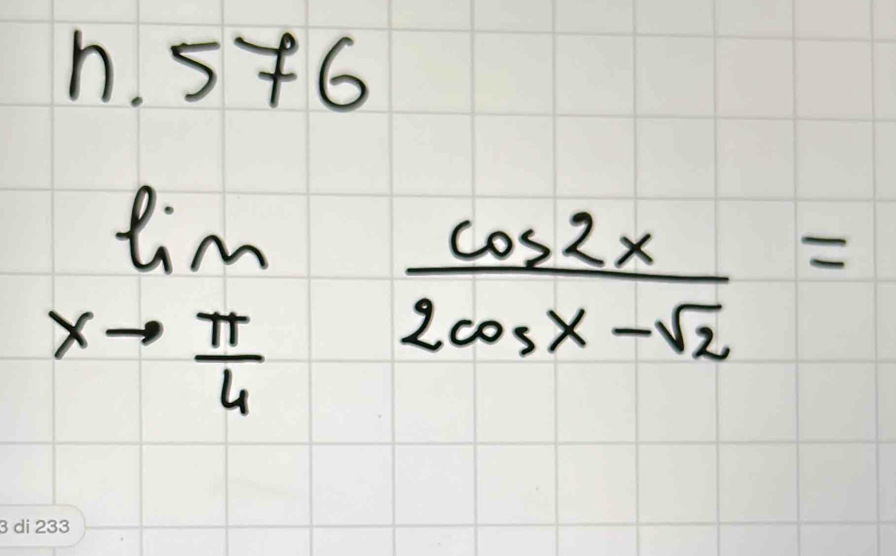 n. 576
lim x→π/4 cos2x/(2cosx-√2) =
3 di 233